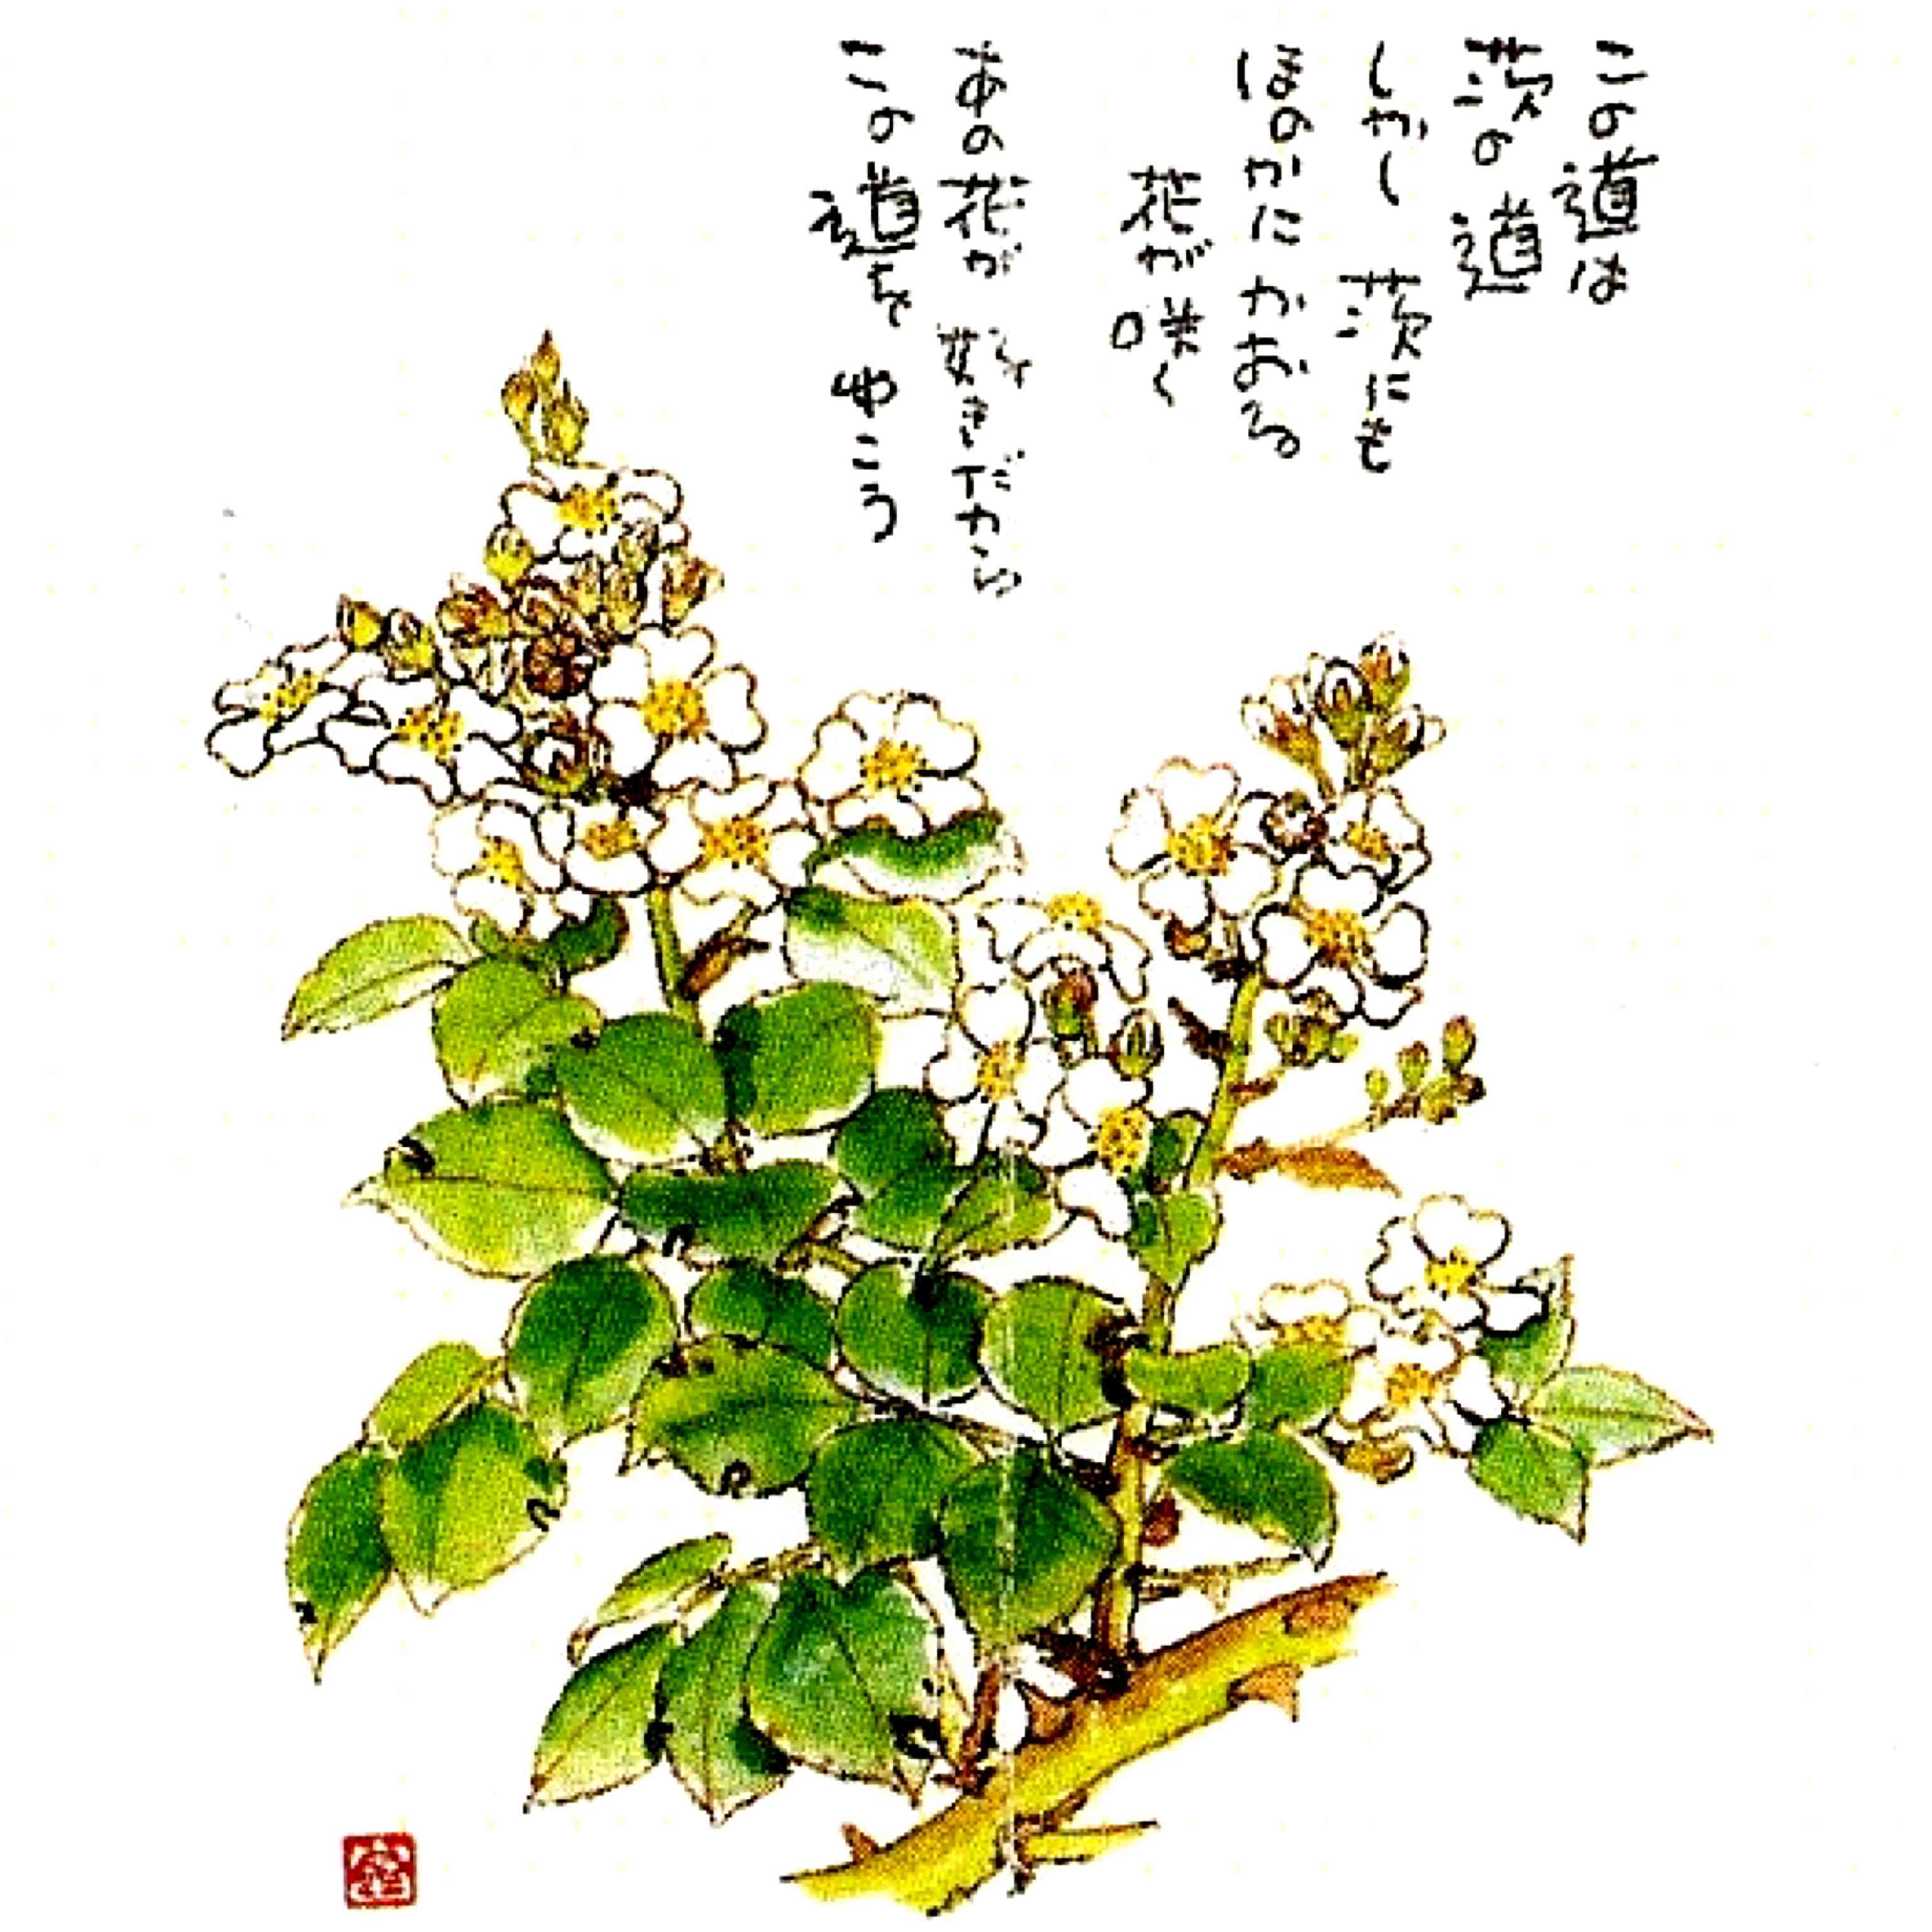 この道は
茨の道
しかし 茨にも
ほのかにかおる
花が咲く
あの花が 好きだから
この道を ゆこう